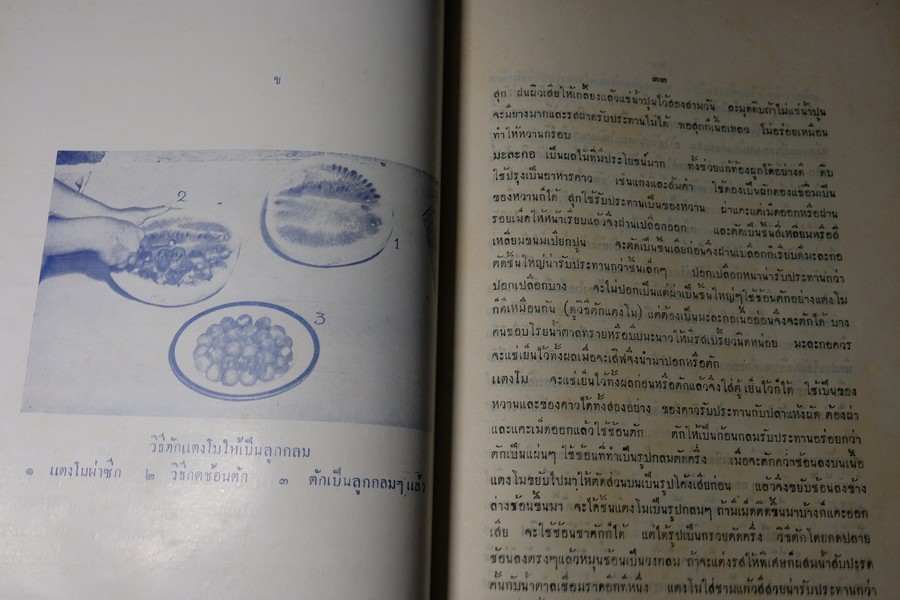 ข
2
1
3
วิธีตักแตงโมให้เป็นลูกกลม
๑ แตงโมผ่าซีก ๒ วิธีกดช้อนตัก ๓ ตักเป็นลูกกลมๆ แล้ว
๓๓
สุก ฝนผิวเสียให้เกลี้ยงแล้วแช่น้ำปูนไว้สองสามวัน ละมุดดิบถ้าไม่แช่น้ำปูน
จะมียางมากและรสฝาดรับประทานไม่ได้ พอสุกก็เนื้อเหลว ไม่อร่อยเหมือน
ทำให้หวานกรอบ
มะละกอ เป็นผลไม้ที่มีประโยชน์มาก ทั้งช่วยแก้ท้องผูกได้อย่างดี ดิบ
ใช้ปรุงเป็นอาหารคาว เช่นแกงและส้มตำ ใช้ดองเป็นผักดองแช่อิ่มเป็น
ของหวานก็ได้ สุกใช้รับประทานเป็นของหวาน ผ่าแคะแต่เม็ดออกหรือฝาน
รอยเม็ดให้หน้าเรียบแล้วจึงฝานเปลือกออก และตัดเป็นชิ้นสี่เหลี่ยมหรือสี่
เหลี่ยมขนมเปียกปูน จะตัดเป็นชิ้นเสียก่อนจึงฝานเปลือกก็เรียบดีมะละกอ
ตัดชิ้นใหญ่น่ารับประทานกว่าชิ้นเล็กๆ ปอกเปลือกหนาน่ารับประทานกว่า
ปอกเปลือกบาง จะไม่ปอกเป็นแต่ผ่าเป็นชิ้นใหญ่ๆใช้ช้อนตักอย่างแตงโม
ก็ดีเหมือนกัน (ดูวิธีตักแตงโม) แต่ต้องเป็นมะละกอเนื้ออ่อนจึงจะตักได้ บาง
คนชอบโรยน้ำตาลทรายหรือบีบมะนาวให้มีรสเปรี้ยวนิดหน่อย มะละกอควร
จะแช่เย็นไว้ทั้งผลเมื่อจะเสิฟจึงนำมาปอกหรือตัก
แตงโม จะแช่เย็นไว้ทั้งผลก่อนหรือตักแล้วจึงใส่ตู้เย็นไว้ก็ได้ ใช้เป็นของ
หวานและของคาวได้ทั้งสองอย่าง ของคาวรับประทานกับปลาแห้งผัด ต้องผ่า
และแคะเม็ดออกแล้วใช้ช้อนตัก ตักให้เป็นก้อนกลมรับประทานอร่อยกว่า
ตักเป็นแผ่นๆ ใช้ช้อนที่ทำเป็นรูปกลมตัดครึ่ง เมื่อจะตักคว่ำช้อนลงบนเนื้อ
แตงโมขยับไปมาให้ตัดส่วนบนเป็นรูปโค้งเสียก่อน แล้วจึงขยับช้อนลงข้าง
ล่างช้อนขึ้นมา จะได้ชิ้นแตงโมเป็นรูปกลมๆ ถ้ามีเม็ดติดขึ้นมาบ้างก็แคะออก
เสีย จะใช้ช้อนชาตักก็ได้ แต่ได้รูปเป็นกรวยตัดครึ่ง วิธีตักโดยกดปลาย
ช้อนลงตรงๆแล้วหมุนช้อนเป็นวงกลม ถ้าจะแต่งรสให้พิเศษก็ผสมน้ำสับปะรด
คั้นกับน้ำตาลเชื่อมราดอีกทีหนึ่ง แตงโมใส่ชามแก้วสีสวยน่ารับประทานกว่า